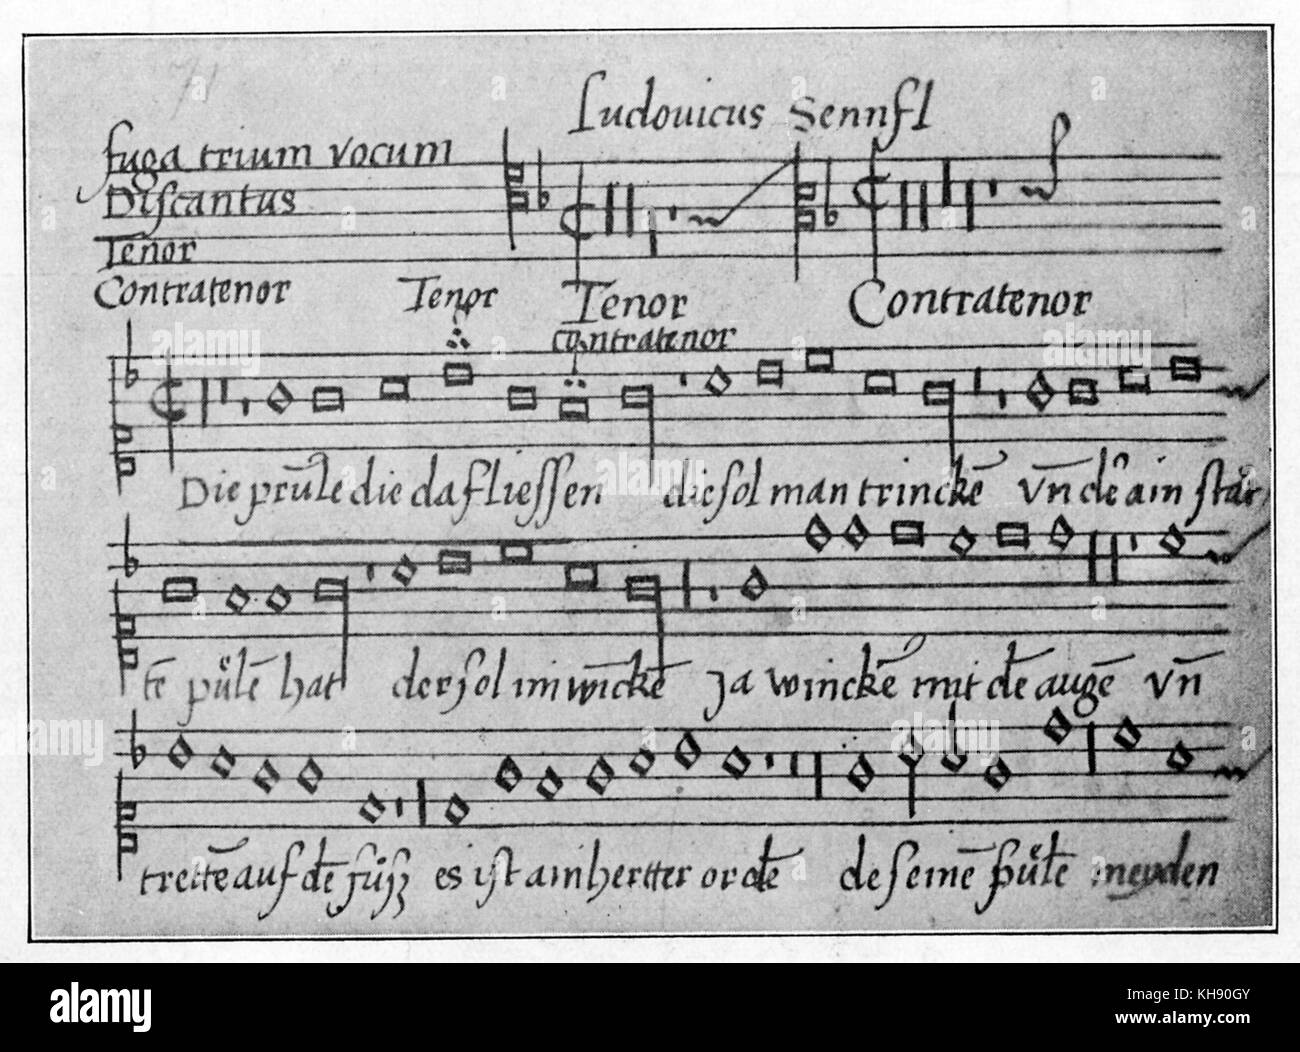 71
Ludouicus Sennfl
fuga trium vocum
Discantus
Tenor
Contratenor Tenor Tenor Contratenor
contratenor
Die prūle die da fliessen die sol man trinckē vn̄ dē ain star
tē pülē hat der sol im wīnckē Ja winckē mit dē augē vn̄
trettē auf dē füsz es ist ain hertter ordē de seinē pülē meyden
alamy
Image ID: KH90GY
www.alamy.com